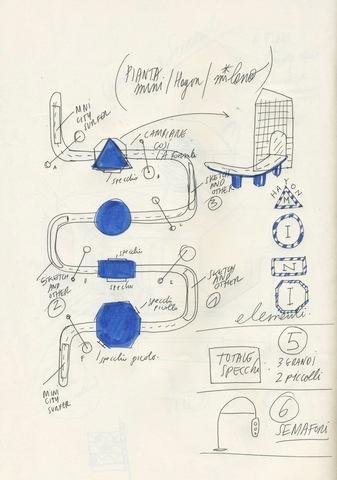 (PIANTA
mini / Hayon / milano)
MINI
CITY
SURFER
CAMBIARE
COSÌ
LA FORMA
A
B
specchio
SKETCH
AND
OTHER
3
HAYON
M
I
N
I
C
specchio
specchio
SKETCH
AND
OTHER
2
D
E
SKETCH
AND
OTHER
1
specchio
piccolo
specchio piccolo.
F
MINI
CITY
SURFER
elementi.
TOTALE
SPECCHI.
5
3 GRANDI
2 PICCOLI
6
SEMAFORI